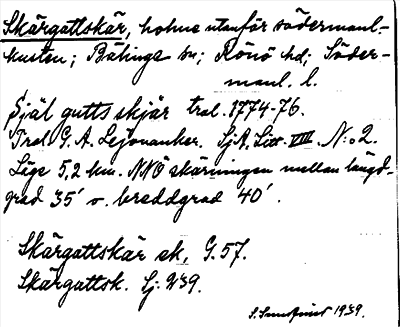 Skärgattskär, holme utanför södermanl-
kusten; Bälinge sn; Rönö hd; Söder-
manl. l.
Själ gutts skjär trol. 1774-76.
Trol G. A. Lejonanker. SjA. Litt. VIII. N:o 2.
Läge 5,2 km. NNÖ skärningen mellan längd-
grad 35' o. breddgrad 40'.
Skärgattskär ek, G. 57.
Skärgattsk. Sj. 239.
S. Sundqvist 1939.